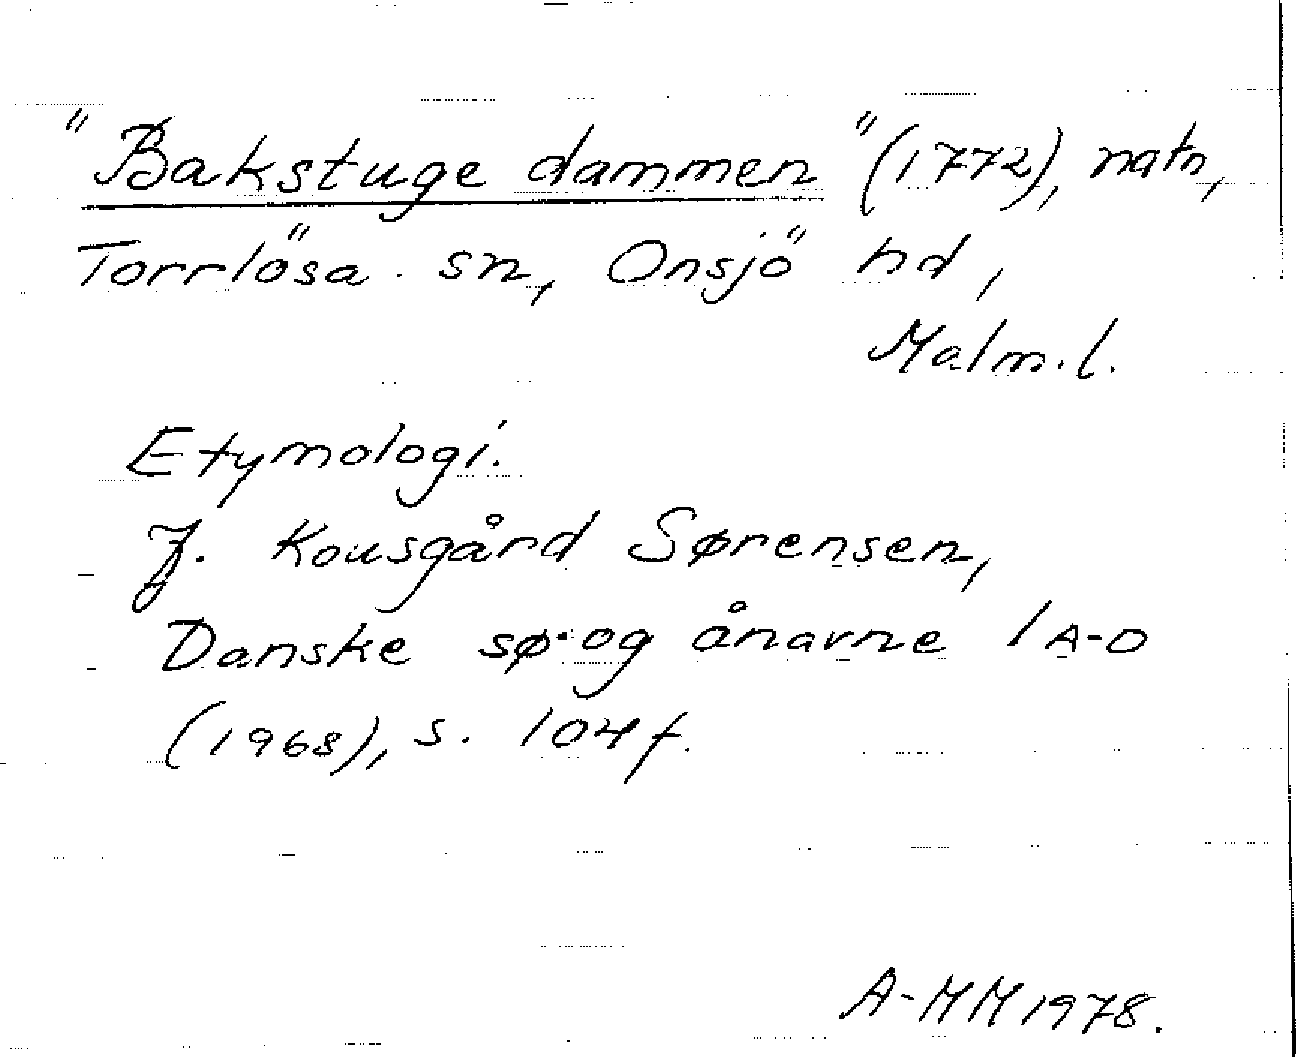 "Bakstuge dammen" (1772), natn,
Torrlösa sn, Onsjö hd,
Malm.l.
Etymologi.
J. Kousgård Sørensen,
Danske sø- og ånavne 1 A-D
(1968), s. 104 f.
A-MM 1978.